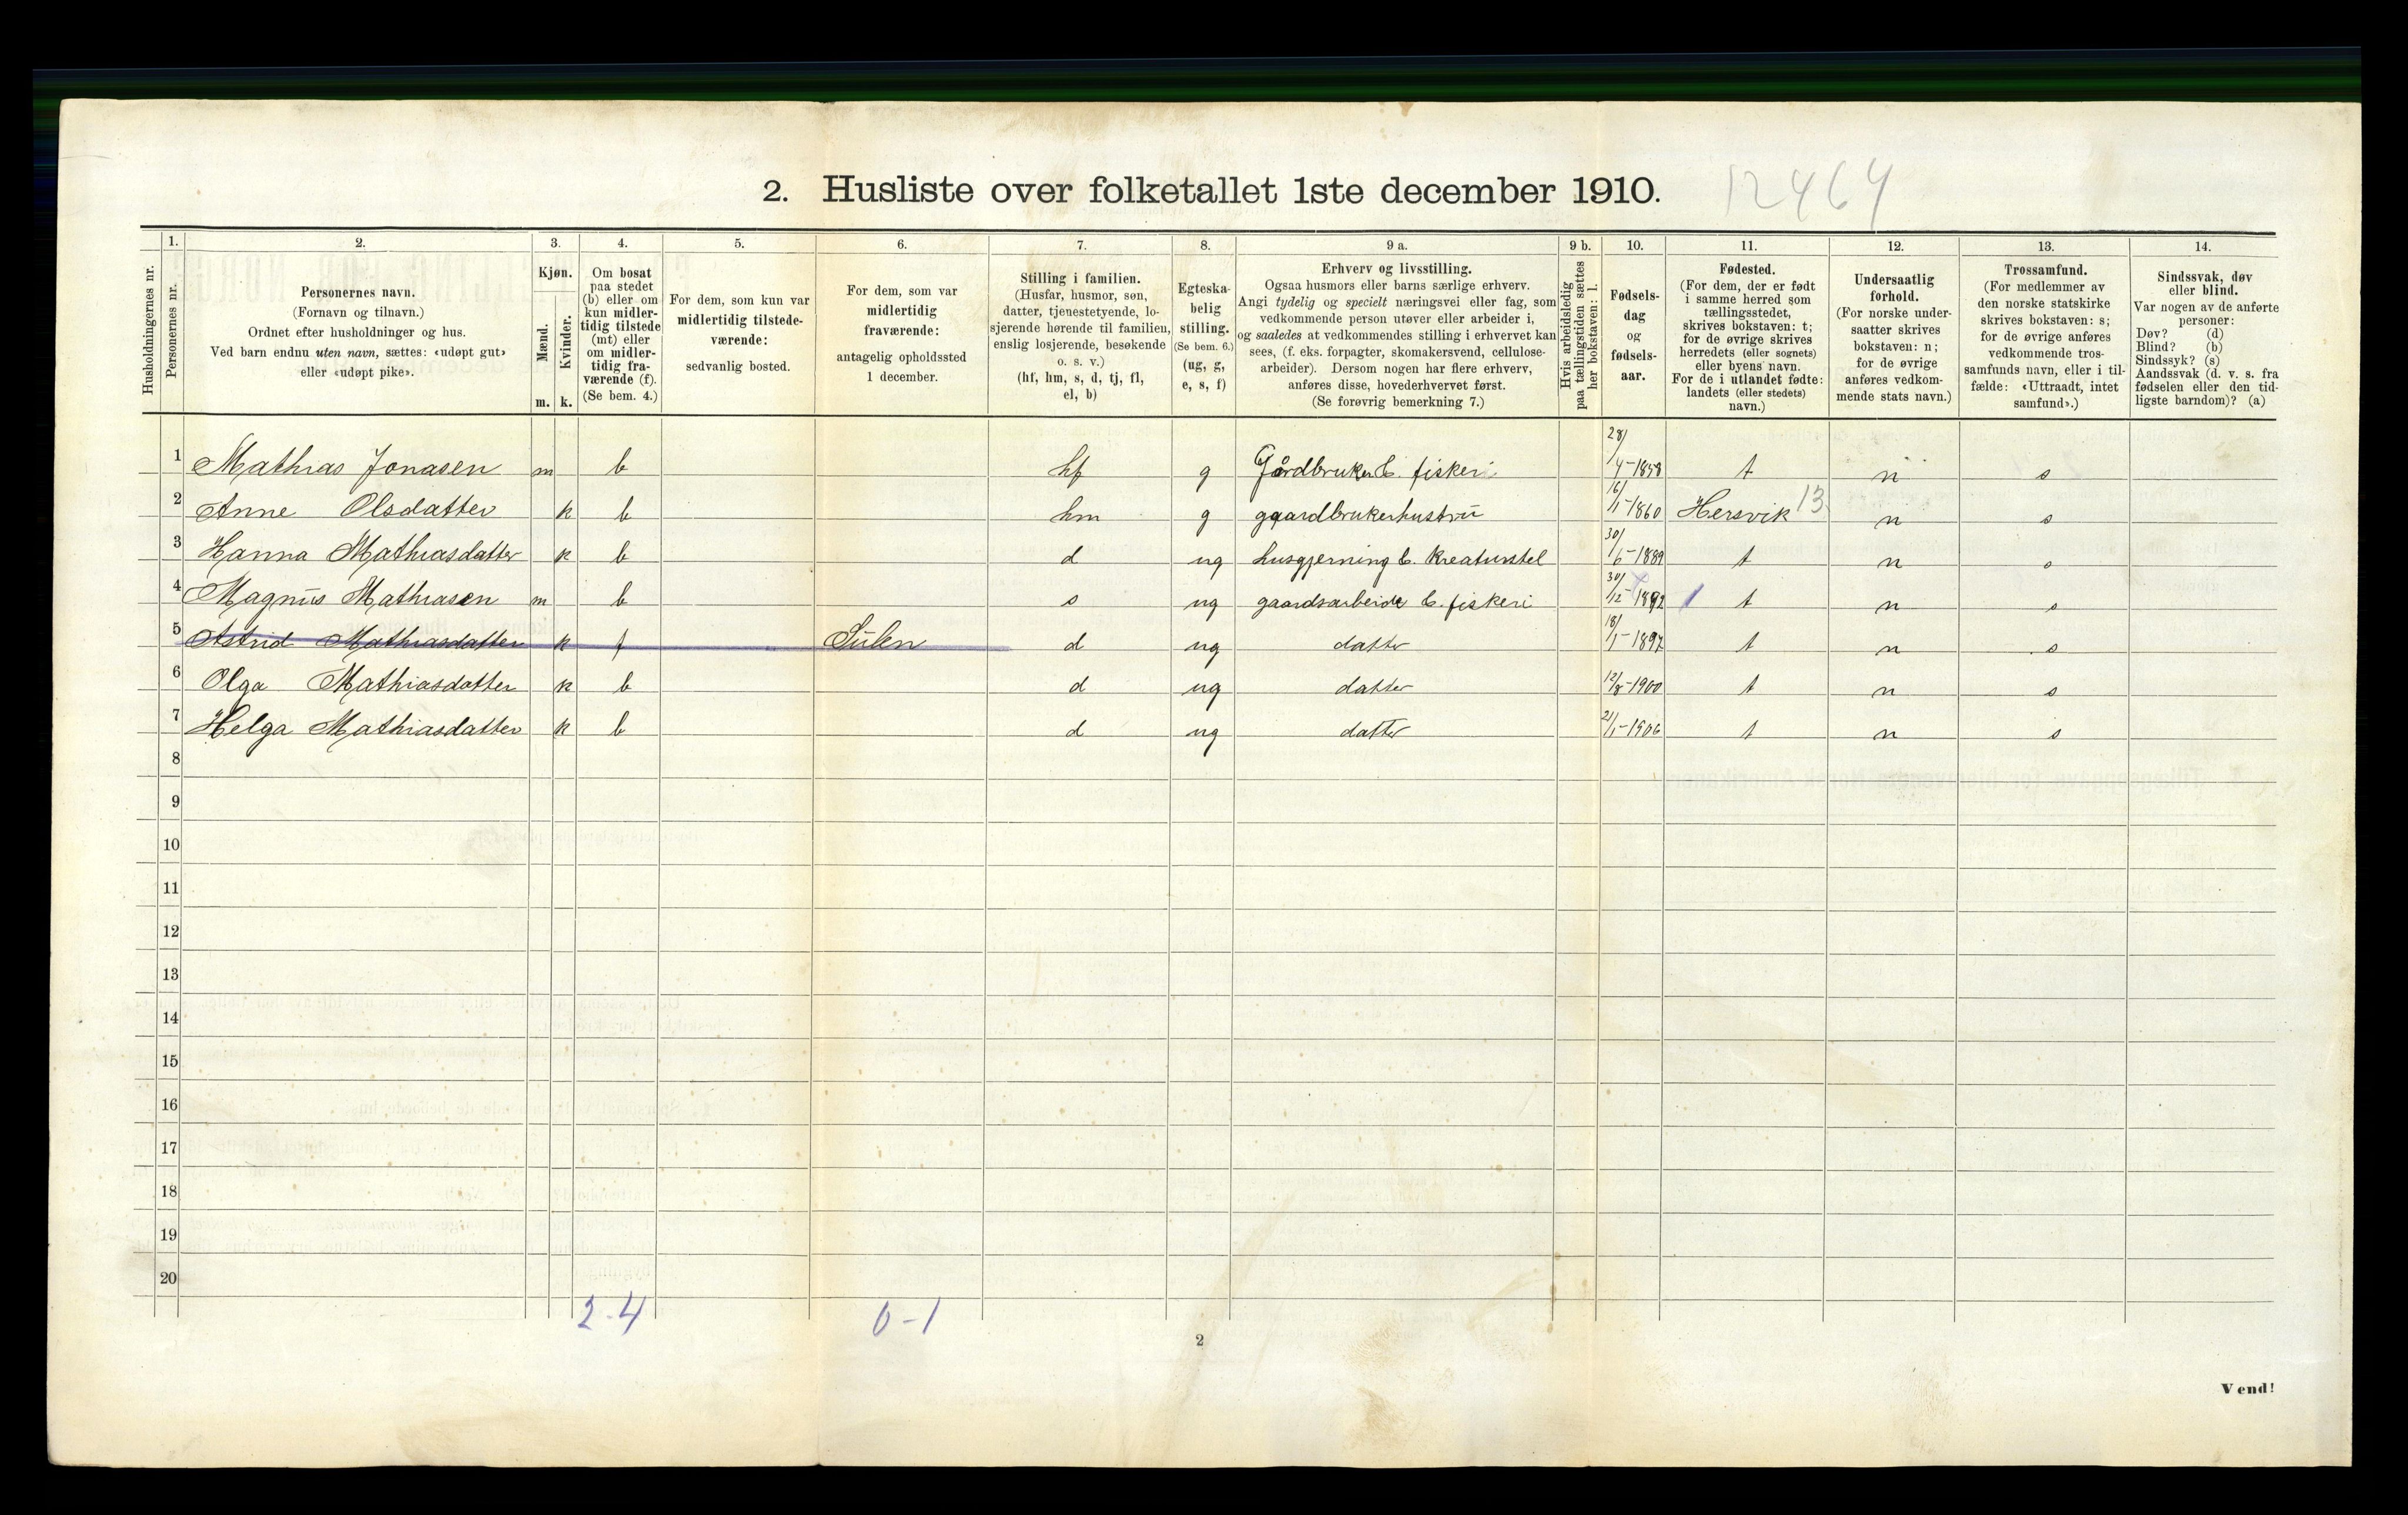 2. Husliste over folketallet 1ste december 1910. 12464
1. 2. 3. 4. 5. 6. 7. 8. 9 a. 9 b. 10. 11. 12. 13. 14.
Husholdningernes nr.
Personernes nr.
Personernes navn.
(Fornavn og tilnavn.)
Ordnet efter husholdninger og hus.
Ved barn endnu uten navn, sættes: «udøpt gut»
eller «udøpt pike».
Kjøn.
Mænd.
Kvinder.
m. k.
Om bosat
paa stedet
(b) eller om
kun midler-
tidig tilstede
(mt) eller
om midler-
tidig fra-
værende (f).
(Se bem. 4.)
For dem, som kun var
midlertidig tilstede-
værende:
sedvanlig bosted.
For dem, som var
midlertidig
fraværende:
antagelig opholdssted
1 december.
Stilling i familien.
(Husfar, husmor, søn,
datter, tjenestetyende, lo-
sjerende hørende til familien,
enslig losjerende, besøkende
o. s. v.)
(hf, hm, s, d, tj, fl,
el, b)
Egteska-
belig
stilling.
(Se bem. 6.)
(ug, g,
e, s, f)
Erhverv og livsstilling.
Ogsaa husmors eller barns særlige erhverv.
Angi tydelig og specielt næringsvei eller fag, som
vedkommende person utøver eller arbeider i,
og saaledes at vedkommendes stilling i erhvervet kan
sees, (f. eks. forpagter, skomakersvend, cellulose-
arbeider). Dersom nogen har flere erhverv,
anføres disse, hovederhvervet først.
(Se forøvrig bemerkning 7.)
Hvis arbeidsledig
paa tællingstiden sættes
her bokstaven: l.
Fødsels-
dag
og
fødsels-
aar.
Fødested.
(For dem, der er født
i samme herred som
tællingsstedet,
skrives bokstaven: t;
for de øvrige skrives
herredets (eller sognets)
eller byens navn.
For de i utlandet fødte:
landets (eller stedets)
navn.)
Undersaatlig
forhold.
(For norske under-
saatter skrives
bokstaven: n;
for de øvrige
anføres vedkom-
mende stats navn.)
Trossamfund.
(For medlemmer av
den norske statskirke
skrives bokstaven: s;
for de øvrige anføres
vedkommende tros-
samfunds navn, eller i til-
fælde: «Uttraadt, intet
samfund».)
Sindssvak, døv
eller blind.
Var nogen av de anførte
personer:
Døv? (d)
Blind? (b)
Sindssyk? (s)
Aandssvak (d. v. s. fra
fødselen eller den tid-
ligste barndom)? (a)
1 Mathias Jonasen m b hf g Gårdbruker & fiskeri 28/4-1858 t n s
2 Anne Olsdatter k b hm g gaardbrukerhustru 16/1-1860 Hersvik 13 n s
3 Hanna Mathiasdatter k b d ug husgjerning & Kreaturstel 30/6-1889 t n s
4 Magnus Mathiasen m b s ug gaardsarbeide & fiskeri 30/12-1892 t n s
5 Astrid Mathiasdatter k f Sulen d ug datter 18/1-1897 t n s
6 Olga Mathiasdatter k b d ug datter 12/8-1900 t n s
7 Helga Mathiasdatter k b d ug datter 21/1-1906 t n s
8
9
10
11
12
13
14
15
16
17
18
19
20
2-4 0-1
2
Vend!